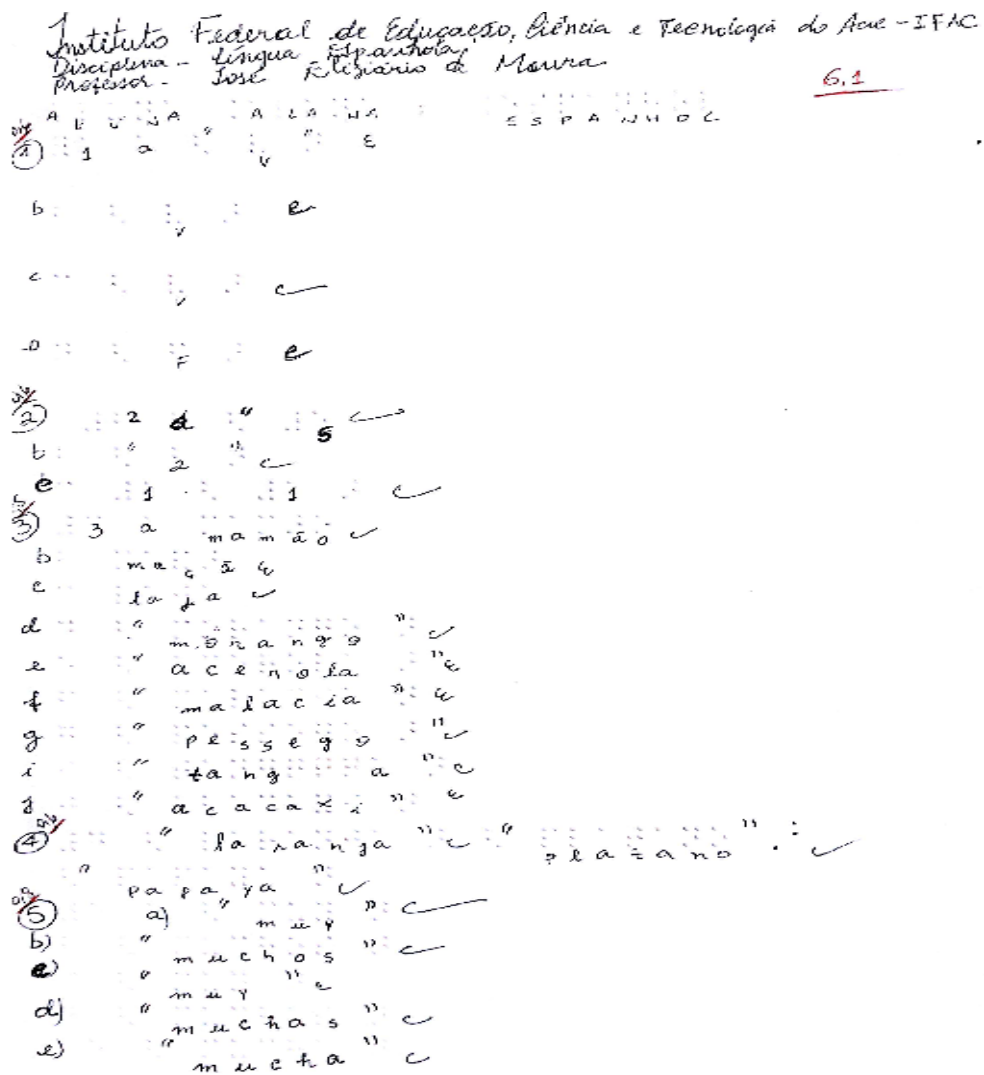 Instituto Federal de Educação, Ciência e Tecnologia do Acre - IFAC
Disciplina - Língua Espanhola
Professor - José Eliziário de Moura
6,1
A L U N A : A L A N E
E S P A N H O L
1 1 a " V " E
b V e
c V c
D F e
2 2 d " s c
b " 2 " c
e 1 1 c
3 3 a mamão c
b maçã E
c jaja c
d " morango " c
e " acerola " E
f " malacia " E
g " pessego " c
i " tang a " c
j " acacaxi " E
4 " laranja " c " platano " : c
" papaya " c
5 a) " muy " c
b) " muchos " c
c) " muy " E
d) " muchas " c
e) " mucha " c